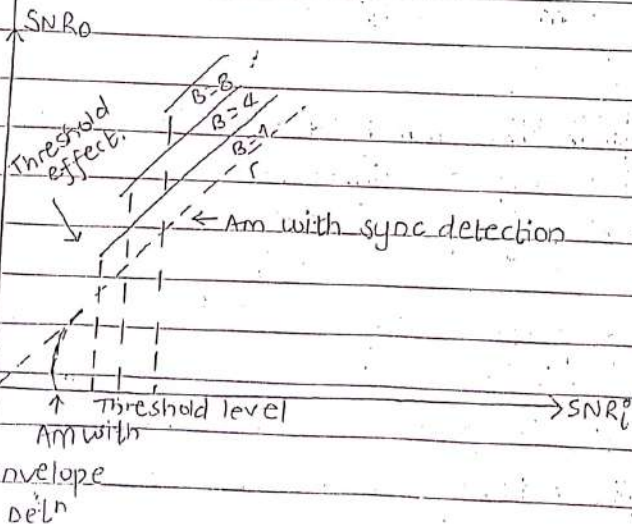 SNRo
B=8
B=4
B=1
Threshold
effect.
← Am with sync detection
Threshold level
SNRi
AM with
nvelope
Detn